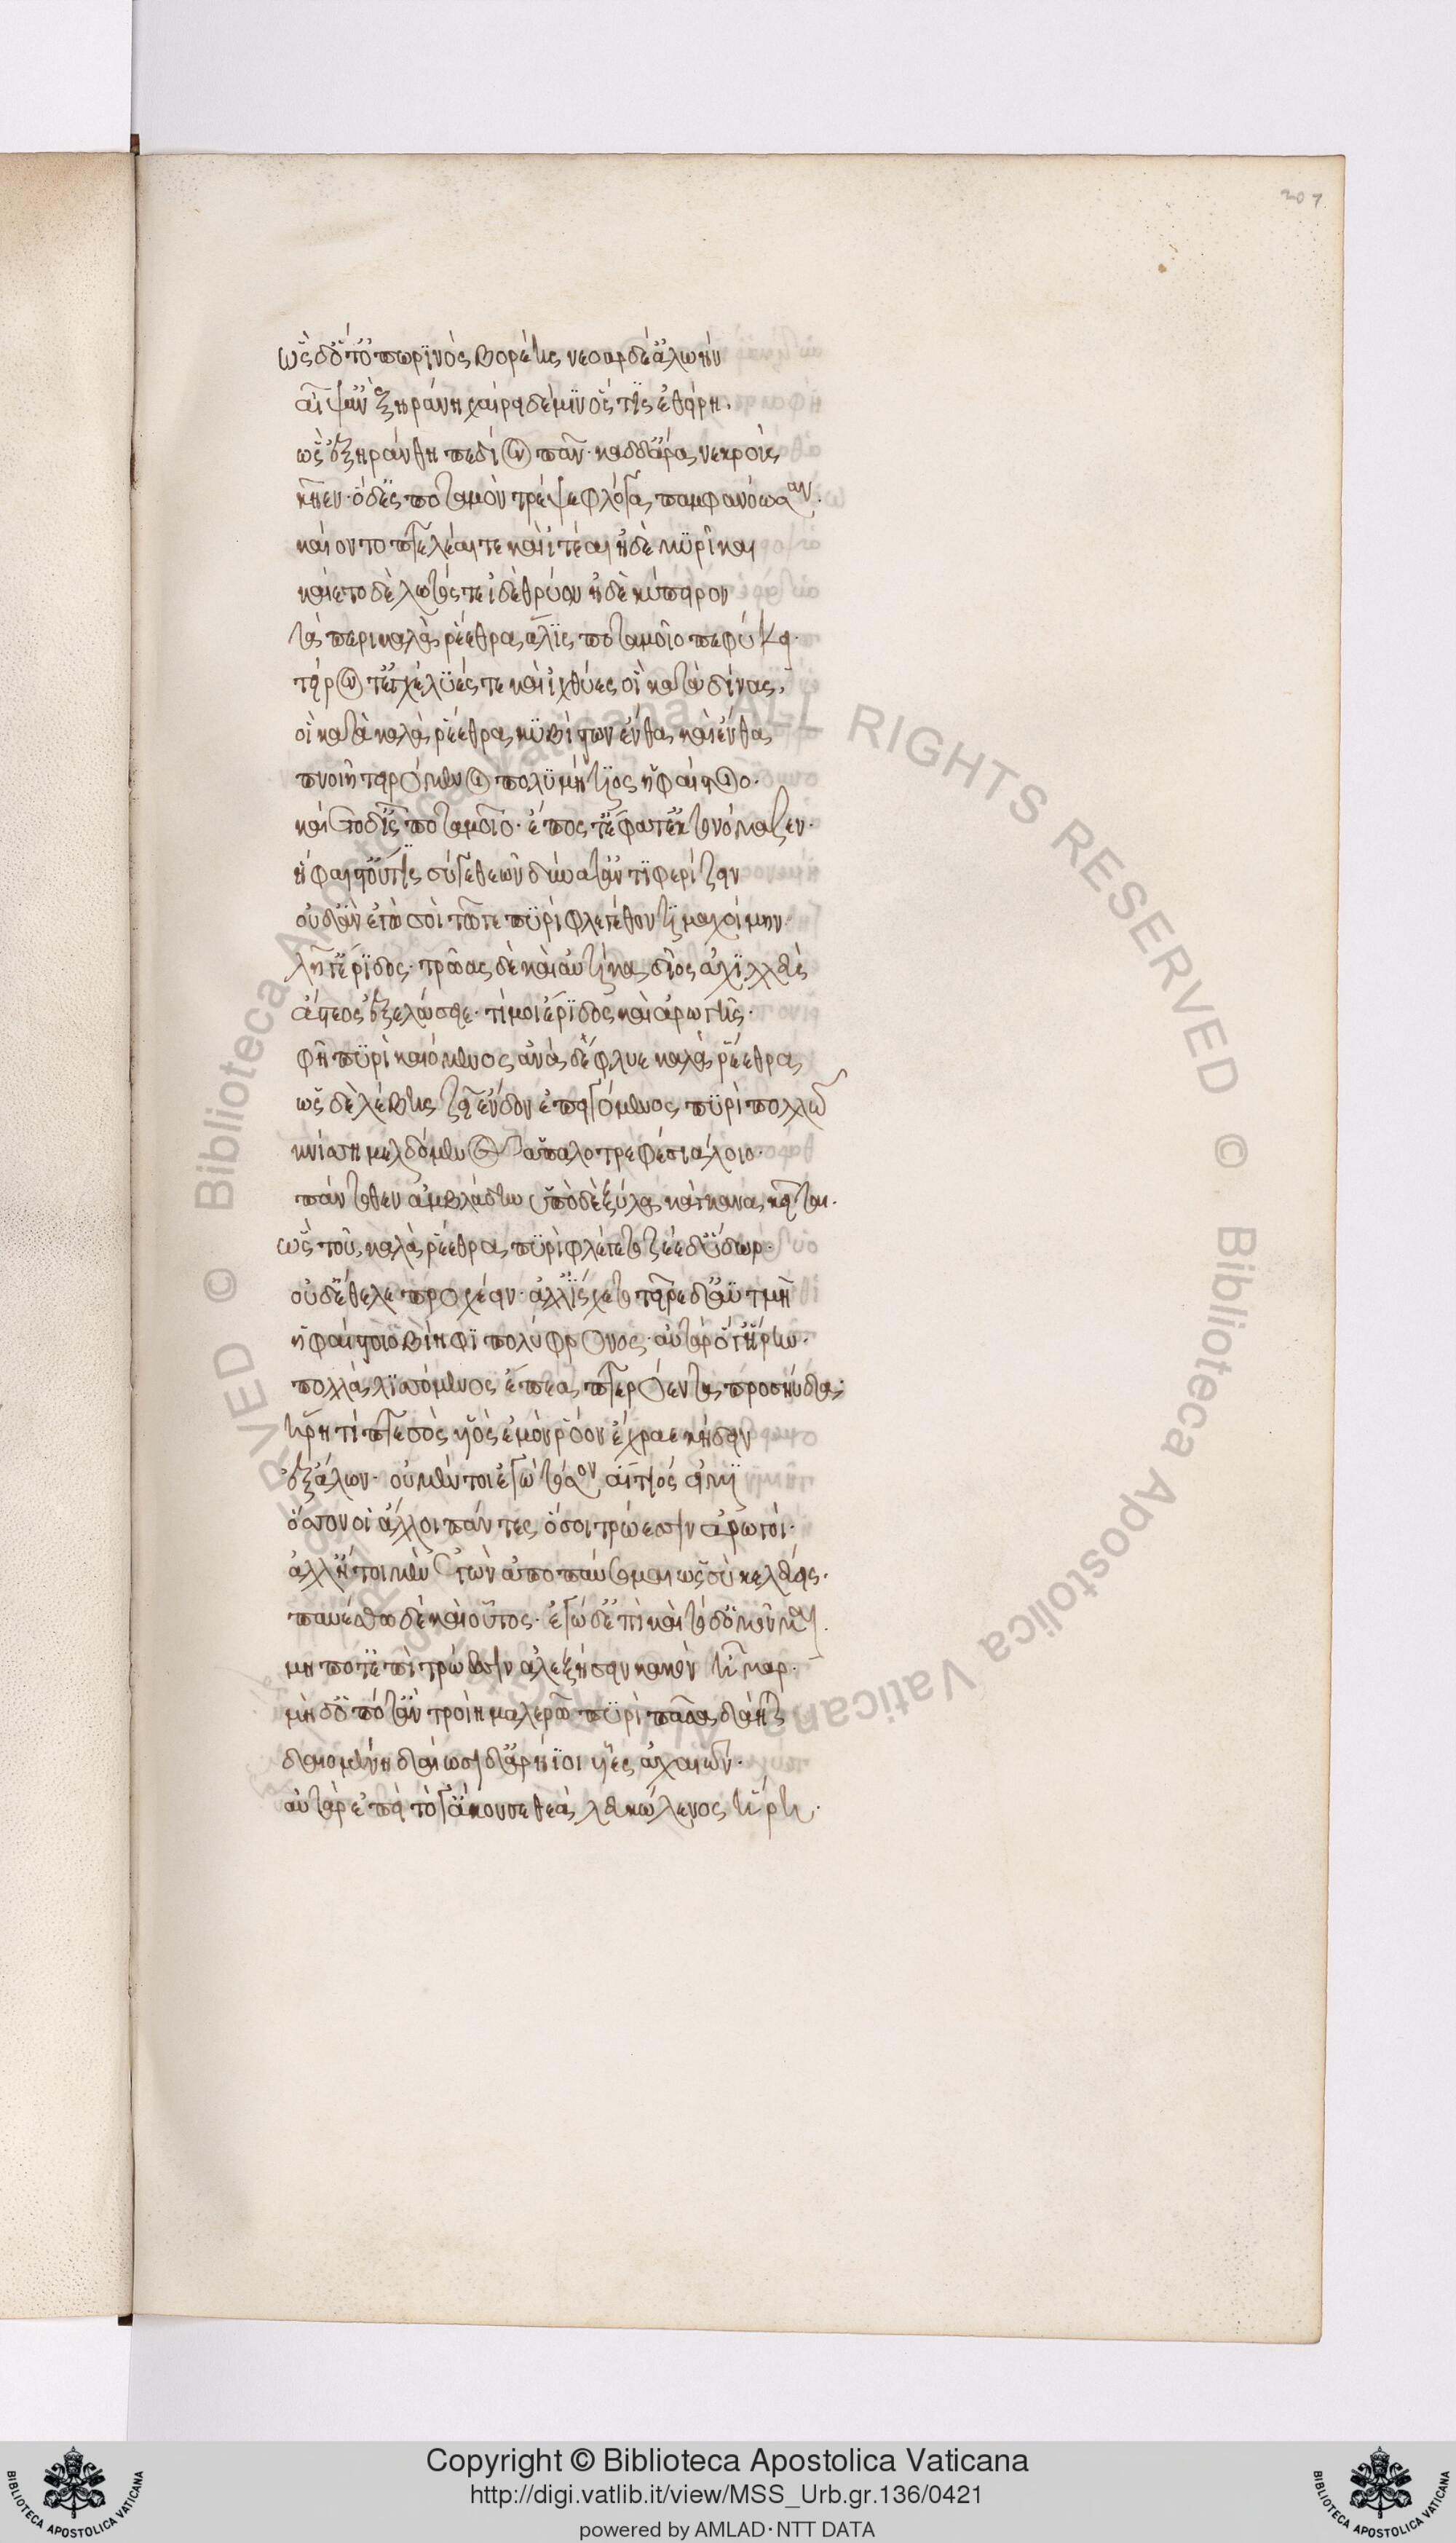 207
ὡς δ' ὅτ' ὀπωρινὸς βορέης νεοαρδέ' ἀλωὴν
αἶψ' ἂν ξηράνη χαίρει δέ μιν ὅς τις ἐθείρη.
ὣς ἐξηράνθη πεδίον πᾶν· καδδ' ἄρα νεκροὺς
κῆεν· ὁ δ' ἐς ποταμὸν τρέψε φλόγα παμφανόωσαν.
καίοντο πτελέαι τε καὶ ἰτέαι ἠδὲ μυρῖκαι
καίετο δὲ λωτός τε ἰδὲ θρύον ἠδὲ κύπειρον
τὰ περὶ καλὰ ῥέεθρα ἅλις ποταμοῖο πεφύκει·
τείροντ' ἐγχέλυές τε καὶ ἰχθύες οἳ κατὰ δίνας,
οἳ κατὰ καλὰ ῥέεθρα κυβίστων ἔνθα καὶ ἔνθα
πνοιῇ τειρόμενοι πολυμήτιος ἡφαίστοιο·
καίετο δ' ἲς ποταμοῖο· ἔπος τ' ἔφατ' ἔκ τ' ὀνόμαζεν·
ἥφαιστ' οὔτις σύγε θεῶν δύνατ' ἀντιφερίζειν
οὐδ' ἂν ἐγὼ σοί γ' ὧδε πυρὶ φλεγέθοντι μαχοίμην·
λῆγ' ἔριδος· τρῶας δὲ καὶ αὐτίκα δῖος ἀχιλλεὺς
ἄστεος ἐξελάσειε· τί μοι ἔριδος καὶ ἀρωγῆς·
φῆ πυρὶ καιόμενος ἀνὰ δ' ἔφλυε καλὰ ῥέεθρα
ὡς δὲ λέβης ζεῖ ἔνδον ἐπειγόμενος πυρὶ πολλῶ
κνίσση μελδόμενος ἁπαλοτρεφέος σιάλοιο·
πάντοθεν ἀμβολάδην ὑπὸ δὲ ξύλα κάγκανα κεῖται·
ὣς τοῦ καλὰ ῥέεθρα πυρὶ φλέγετο ζέε δ' ὕδωρ·
οὐδ' ἔθελε προρέειν· ἀλλ' ἴσχετο τεῖρε δ' ἀϋτμὴ
ἡφαίστοιο βίηφι πολύφρονος· αὐτὰρ ὅγ' ἥρην·
πολλὰ λισσόμενος ἔπεα πτερόεντα προσηύδα·
ἥρη τίπτε σὸς υἱὸς ἐμὸν ῥόον ἔχραε κήδειν
ἐξ ἄλλων· οὐ μέν τοι ἐγὼ τόσον αἴτιός εἰμι
ὅσσον οἱ ἄλλοι πάντες, ὅσοι τρώεσσιν ἀρωγοί·
ἀλλ' ἤτοι μὲν ἐγὼν ἀποπαύσομαι ὡς σὺ κελεύεις·
παυέσθω δὲ καὶ οὗτος· ἐγὼ δ' ἐπὶ καὶ τόδ' ὀμοῦμαι
μή ποτ' ἐπὶ τρώεσσιν ἀλεξήσειν κακὸν ἦμαρ·
μὴ δ' ὁπότ' ἂν τροίη μαλερῶ πυρὶ πᾶσα δάηται
δαιομένη δαίωσι δ' ἀρήϊοι υἷες ἀχαιῶν·
αὐτὰρ ἐπεὶ τόγ' ἄκουσε θεὰ λευκώλενος ἥρη·
Copyright © Biblioteca Apostolica Vaticana
http://digi.vatlib.it/view/MSS_Urb.gr.136/0421
powered by AMLAD·NTT DATA
BIBLIOTECA APOSTOLICA VATICANA
BIBLIOTECA APOSTOLICA VATICANA
© Biblioteca Apostolica Vaticana ALL RIGHTS RESERVED © Biblioteca Apostolica Vaticana ALL RIGHTS RESERVED